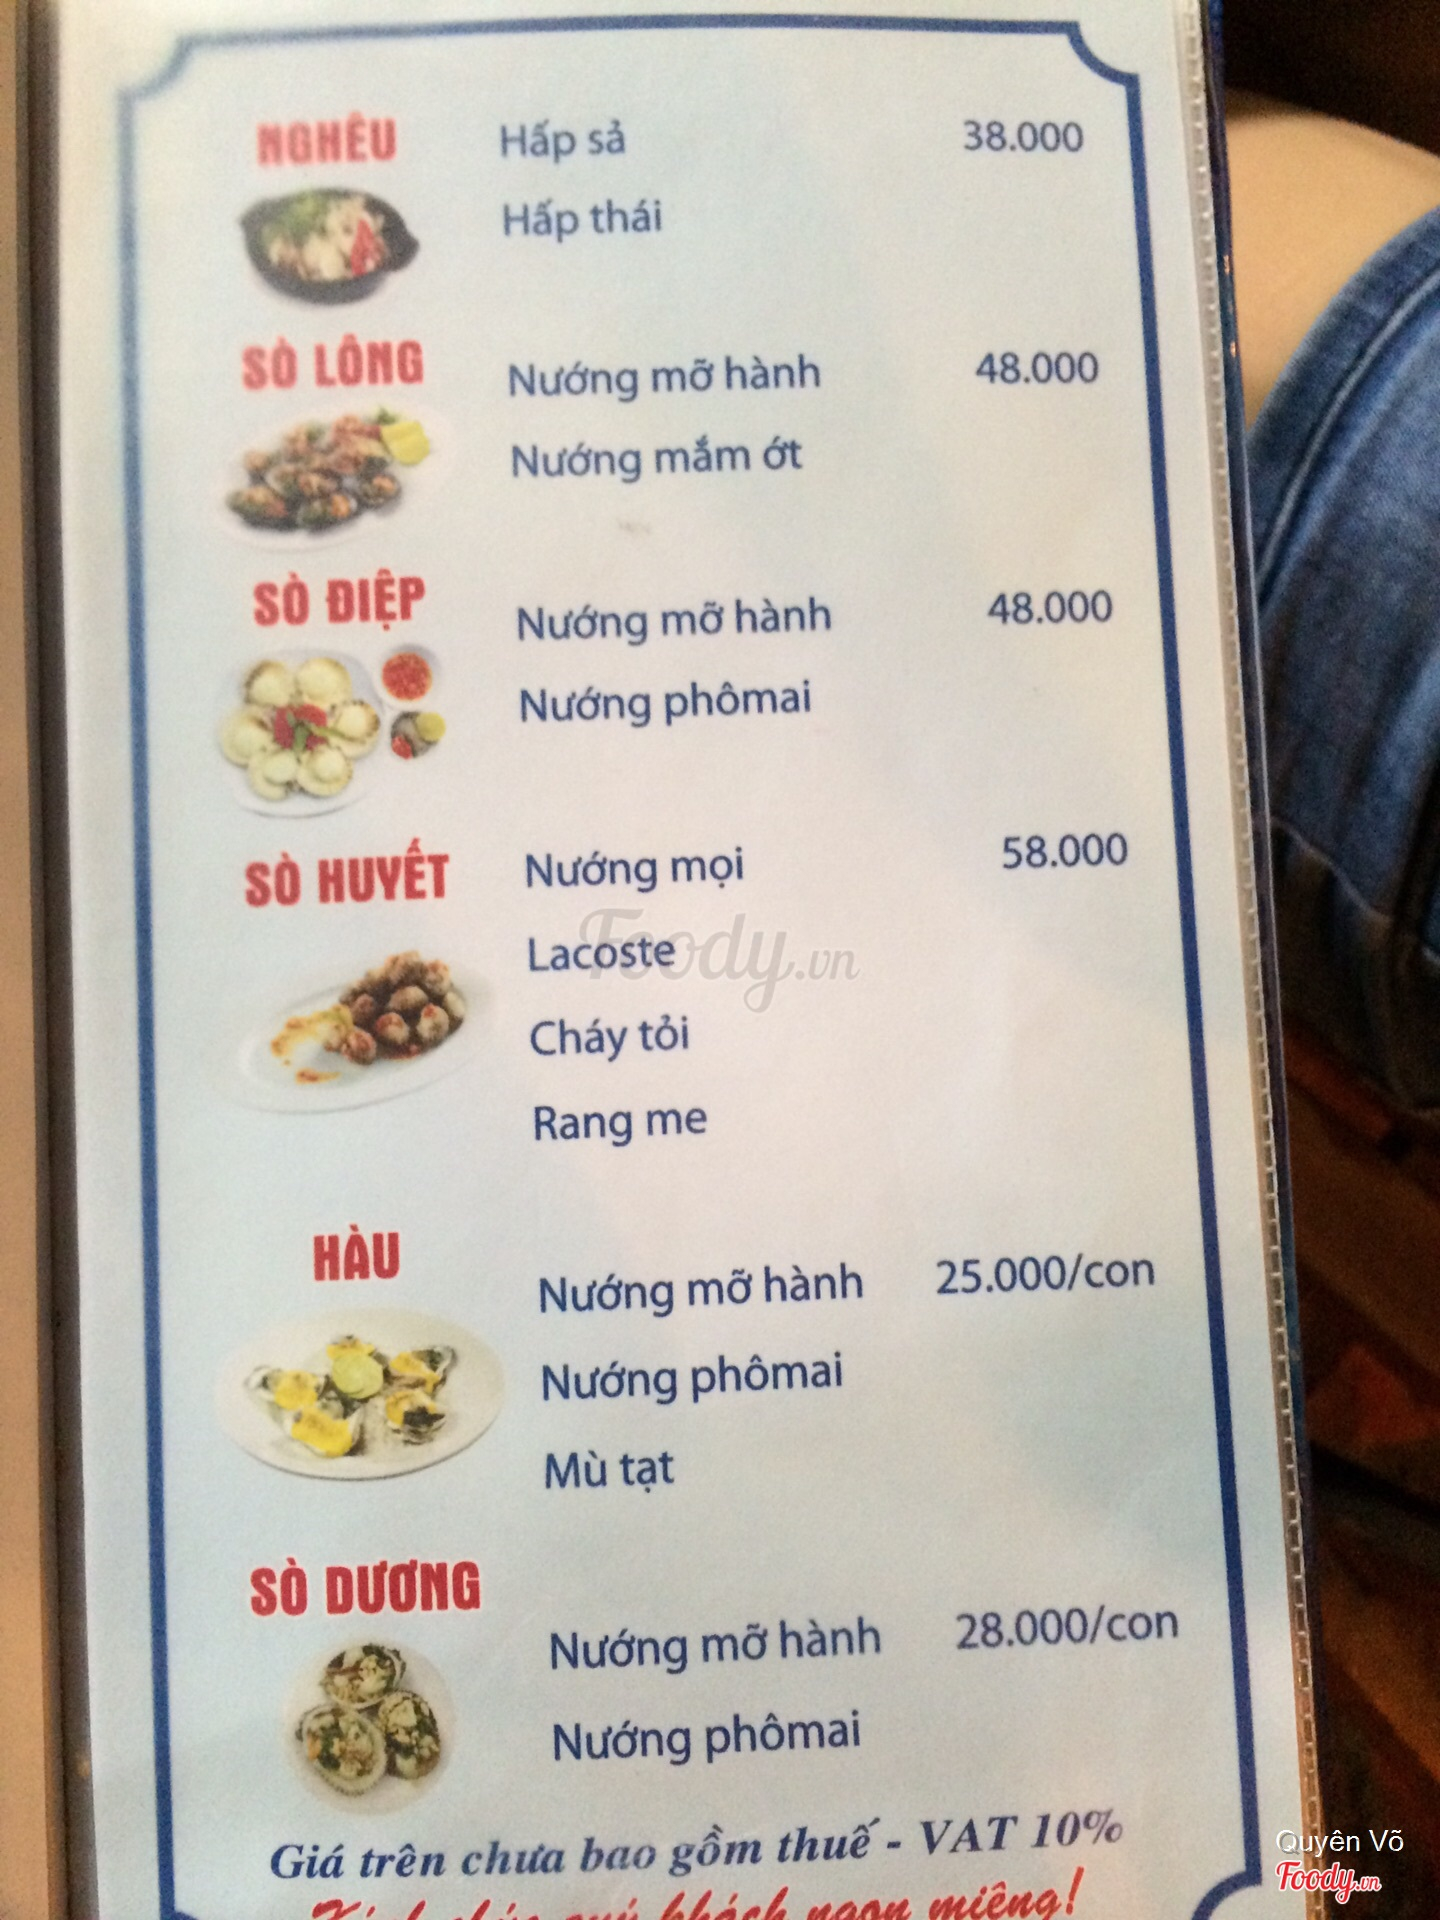 NGHÊU
Hấp sả 38.000
Hấp thái
SÒ LÔNG
Nướng mỡ hành 48.000
Nướng mắm ớt
SÒ ĐIỆP
Nướng mỡ hành 48.000
Nướng phômai
SÒ HUYẾT
Nướng mọi 58.000
Lacoste
Foody.vn
Cháy tỏi
Rang me
HÀU
Nướng mỡ hành 25.000/con
Nướng phômai
Mù tạt
SÒ DƯƠNG
Nướng mỡ hành 28.000/con
Nướng phômai
Giá trên chưa bao gồm thuế - VAT 10%
Kính chúc quý khách ngon miệng!
Quyên Võ
Foody.vn